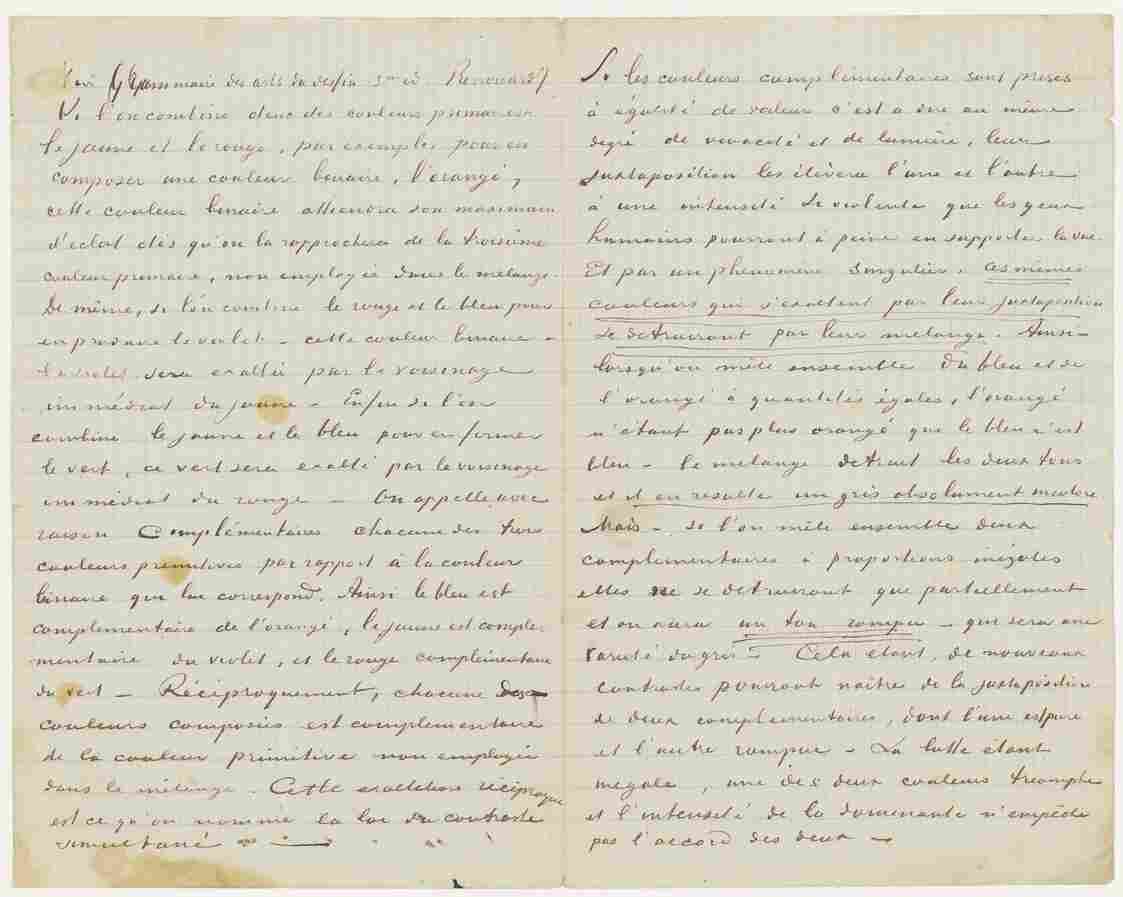 (voir Grammaire des arts du dessin 3me ed. Renouard)
Si l'on combine deux des couleurs primaires
le jaune et le rouge, par exemple pour en
composer une couleur binaire, l'orangé,
cette couleur binaire atteindra son maximum
d'éclat dès qu'on la rapprochera de la troisième
couleur primaire, non employée dans le mélange.
De même, si l'on combine le rouge et le bleu pour
en produire le violet – cette couleur binaire –
le violet sera exaltée par le voisinage
immédiat du jaune – Enfin si l'on
combine le jaune et le bleu pour en former
le vert, ce vert sera exalté par le voisinage
immédiat du rouge – On appelle avec
raison Complémentaires chacune des trois
couleurs primitives par rapport à la couleur
binaire qui lui correspond. Ainsi le bleu est
complementaire de l'orangé, le jaune est comple-
mentaire du violet, et le rouge complémentaire
du vert – Réciproquement, chacune des
couleurs composées est complementaire
de la couleur primitive non employée
dans le mélange. Cette exaltation réciproque
est ce qu'on nomme la loi du contraste
simultané –
Si les couleurs complémentaires sont prises
à égalité de valeur c'est a dire au même
degré de vivacité et de lumière, leur
juxtaposition les élèvera l'une et l'autre
à une intensité si violente que les yeux
humains pourront à peine en supporter la vue.
Et par un phénomène singulier, ces mêmes
couleurs qui s'exaltent par leur juxtaposition
se detruiront par leur mélange. Ainsi –
lorsqu'on mêle ensemble du bleu et de
l'orangé à quantités égales, l'orangé
n'étant pas plus orangé que le bleu n'est
bleu – le mélange détruit les deux tons
et il en résulte un gris absolument incolore.
Mais – si l'on mêle ensemble deux
complémentaires à proportions inégales
elles ne se detruiront que partiellement
et on aura un ton rompu – qui sera une
varieté du gris – Cela étant, de nouveaux
contrastes pourront naître de la juxtaposition
de deux complementaires, dont l'une est pure
et l'autre rompue – La lutte étant
inégale, une des deux couleurs triomphe
et l'intensité de la dominante n'empêche
pas l'accord des deux –